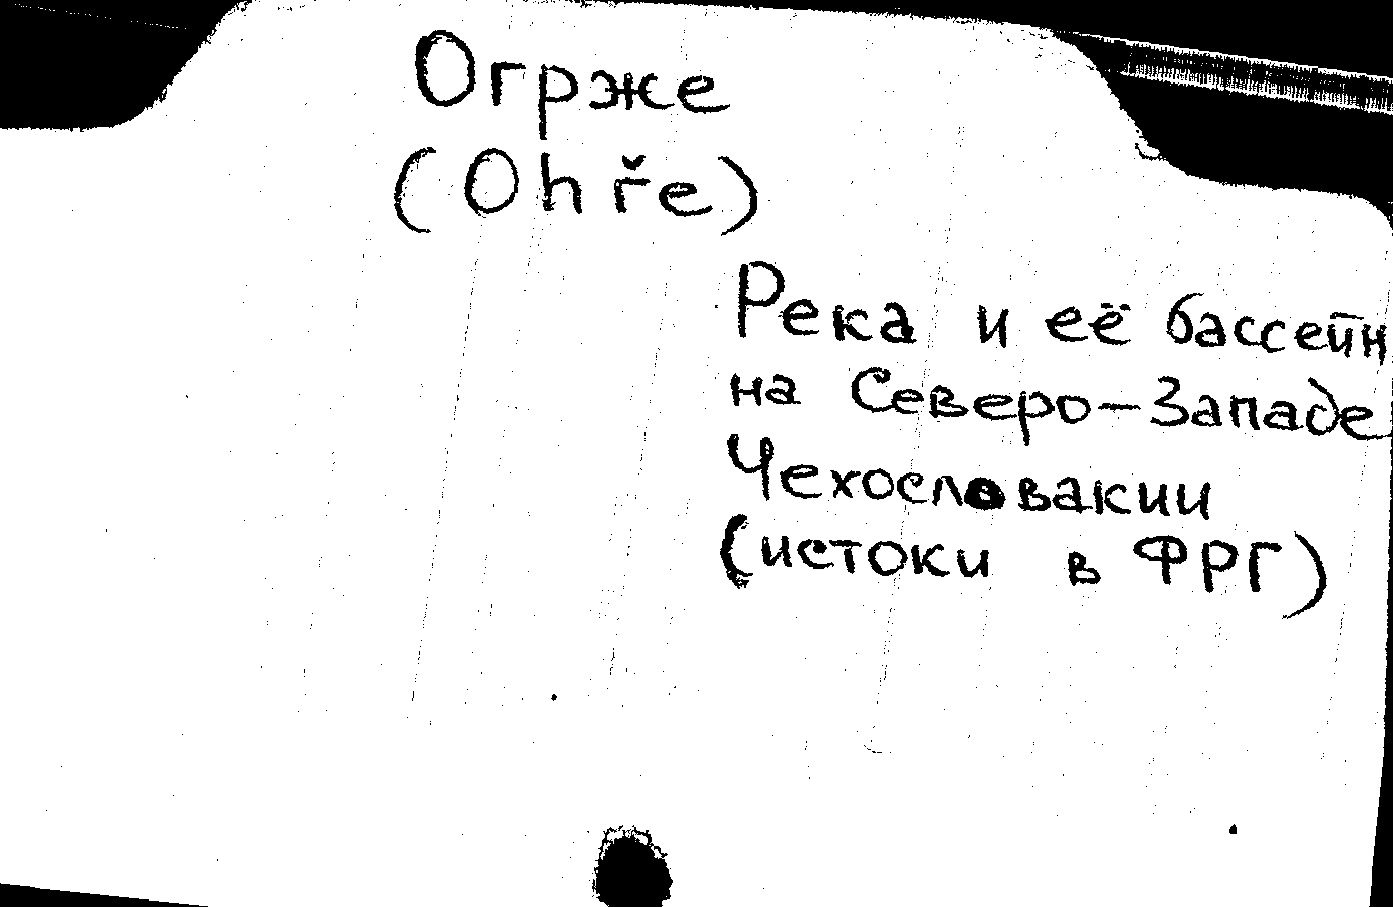 Огрже
(Ohře)
Река и её бассейн
на Северо-Западе
Чехословакии
(истоки в ФРГ)